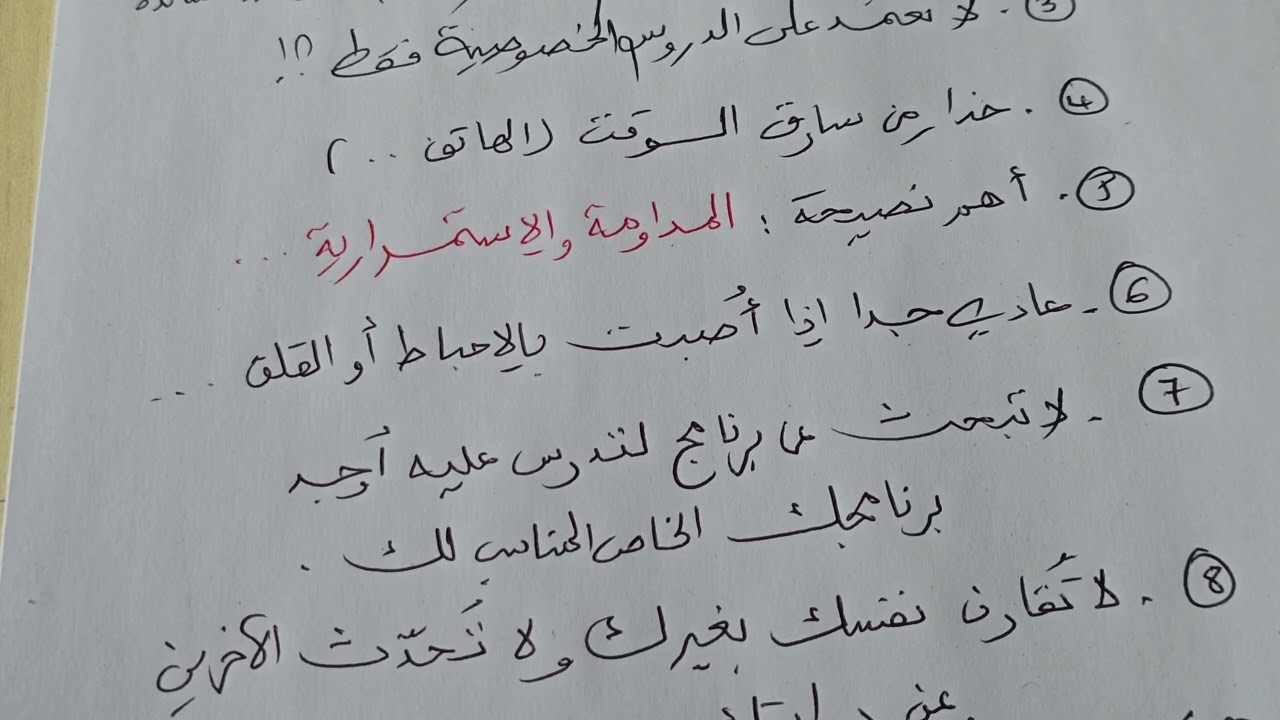 3. لا تعتمد على الدروس الخصوصية فقط ؟!!
4. حذار من سارق الوقت (الهاتف .. )
5. أهم نصيحة : المداومة والاستمرارية ...
6 - عادي جدا إذا أُصبت بالإحباط أو القلق ...
7 - لا تبحث عن برنامج لتدرس عليه أوجد
برنامجك الخاص المناسب لك .
8 - لا تُقارن نفسك بغيرك ولا تُحدّث الآخرين
عن